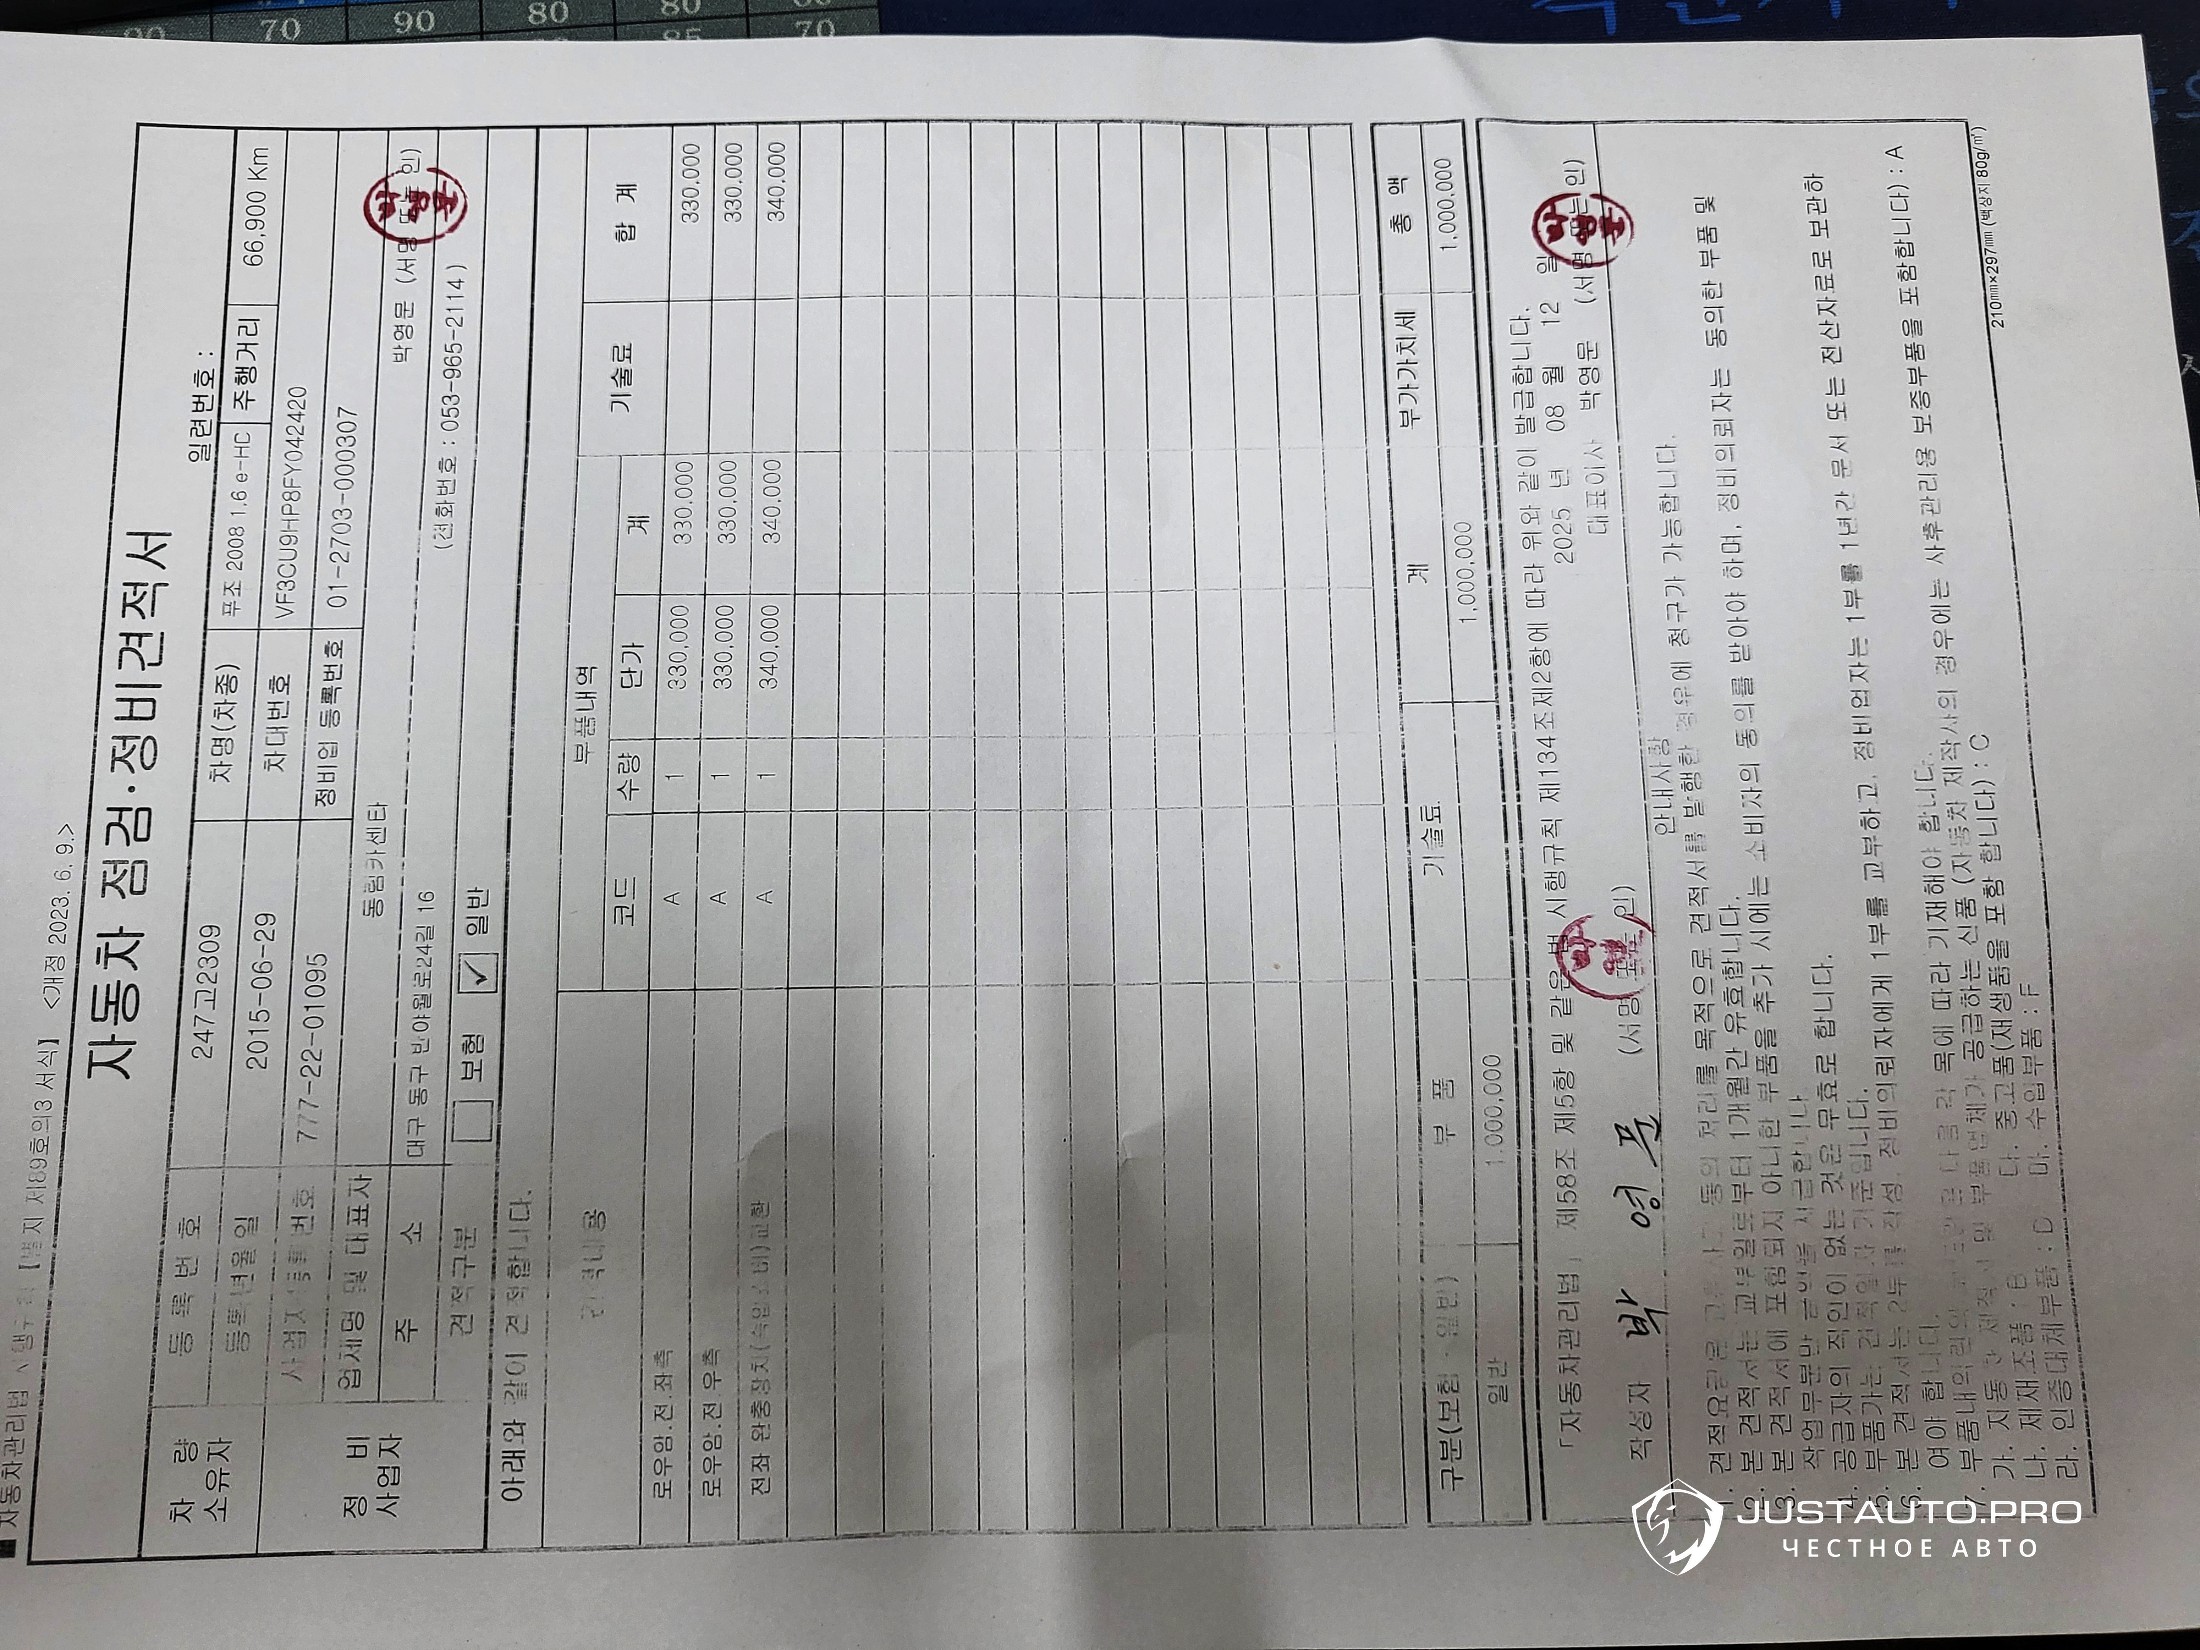 70 90 80 80
85 70
■ 자동차관리법 시행규칙 [별지 제89호의3 서식] <개정 2023. 6. 9.>
자동차 점검·정비견적서
일련번호 :
차 량 소유자
등 록 번 호 247고2309 차명(차종) 푸조 2008 1.6 e-HC 주행거리 66,900 Km
등록년월일 2015-06-29 차대번호 VF3CU9HP8FY042420
정 비 사업자
사업자등록번호 777-22-01095 정비업 등록번호 01-2703-000307
업체명 및 대표자 동림카센타 박영문 (서명 또는 인)
주 소 대구 동구 반야월로24길 16 (전화번호 : 053-965-2114 )
견적구분 보험 ✓ 일반
아래와 같이 견적합니다.
견적내용 부품내역 기술료 합 계
코드 수량 단가 계
로우암.전.좌측 A 1 330,000 330,000 330,000
로우암.전.우측 A 1 330,000 330,000 330,000
전좌 완충장치(속업소버)교환 A 1 340,000 340,000 340,000
구분(보험·일반) 부 품 기술료 계 부가가치세 총 액
일반 1,000,000 1,000,000 1,000,000
「자동차관리법」 제58조 제5항 및 같은 법 시행규칙 제134조제2항에 따라 위와 같이 발급합니다.
2025 년 08 월 12 일
작성자 박 영 문 (서명 또는 인) 대표이사 박영문 (서명 또는 인)
안내사항
1. 견적요금은 교통사고 등의 처리를 목적으로 견적서를 발행한 경우에 청구가 가능합니다.
2. 본 견적서는 교부일로부터 1개월간 유효합니다.
3. 본 견적서에 포함되지 아니한 부품을 추가 시에는 소비자의 동의를 받아야 하며, 정비의뢰자는 동의한 부품 및
작업부분만 금액을 지급합니다.
4. 공급자의 직인이 없는 것은 무효로 합니다.
5. 부품가는 견적일자 기준입니다.
6. 본 견적서는 2부를 작성, 정비의뢰자에게 1부를 교부하고, 정비업자는 1부를 1년간 문서 또는 전산자료로 보관하
여야 합니다.
7. 부품내의 다음 각 목에 따라 기재해야 합니다.
가. 자동차 제작사 및 부품업체가 공급하는 신품 (자동차 제작사의 경우에는 사후관리용 보증부품을 포함합니다) : A
나. 재제조품 : B 다. 중고품(재생품을 포함 합니다) : C
라. 인증대체부품 : D 마. 수입부품 : F
210㎜×297㎜ (백상지 80g/㎡)
JUSTAUTO.PRO
ЧЕСТНОЕ АВТО